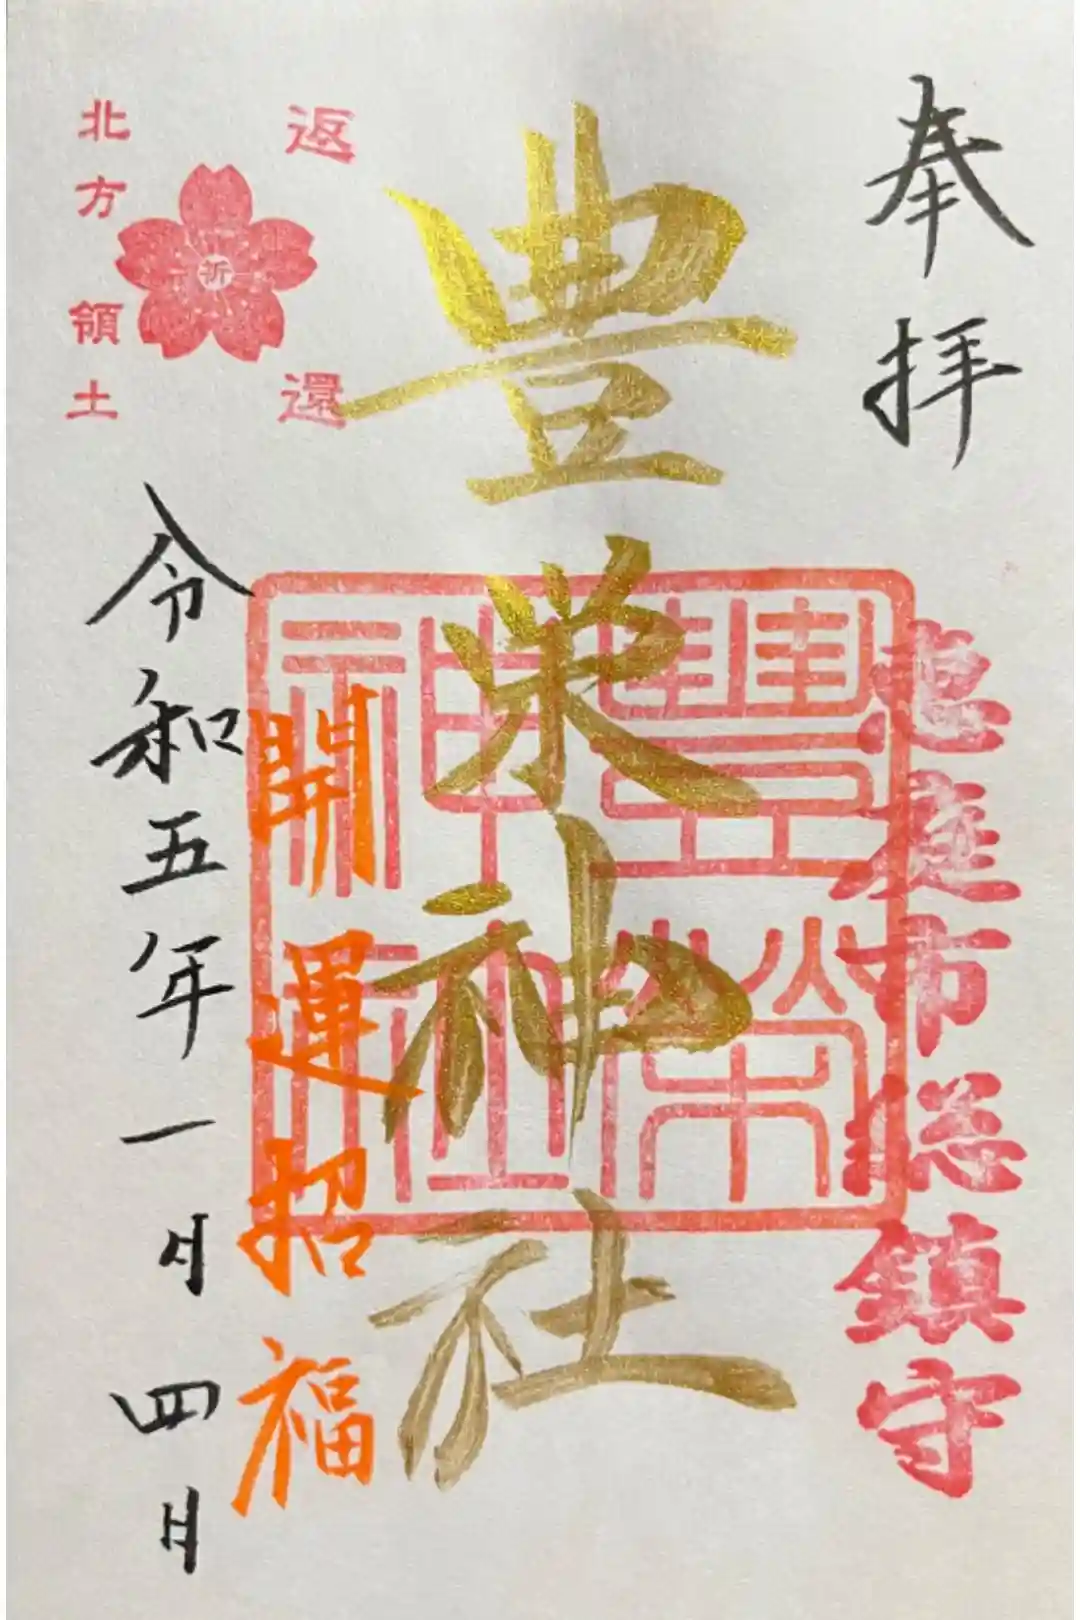 奉拝
恵庭市総鎮守
豊栄神社
豊栄神社
開運招福
返還
北方領土
祈
令和五年一月四日